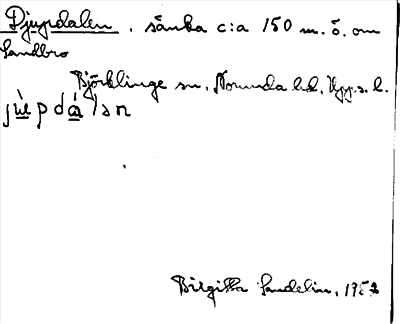 Djupdalen, sänka c:a 150 m. ö. om
Sandbro
Björklinge sn, Norunda hd, Upps. l.
jù̱pdá̱lən
Birgitta Sundelin, 1952